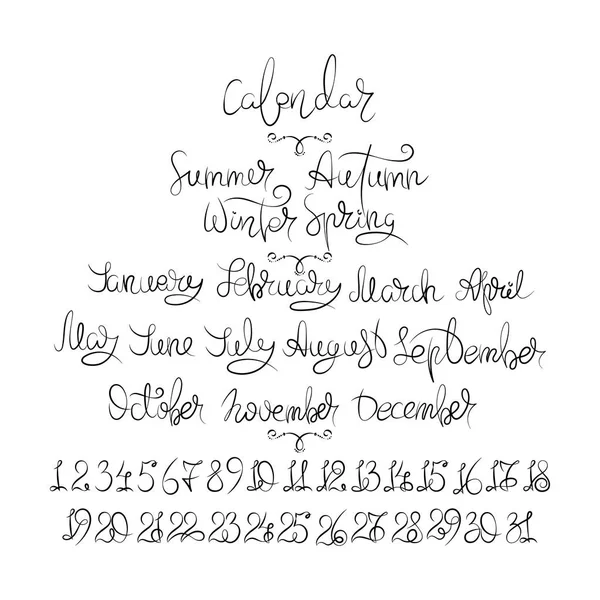 Calendar
Summer Autumn
Winter Spring
January February March April
May June July August September
October November December
1 2 3 4 5 6 7 8 9 10 11 12 13 14 15 16 17 18
19 20 21 22 23 24 25 26 27 28 29 30 31